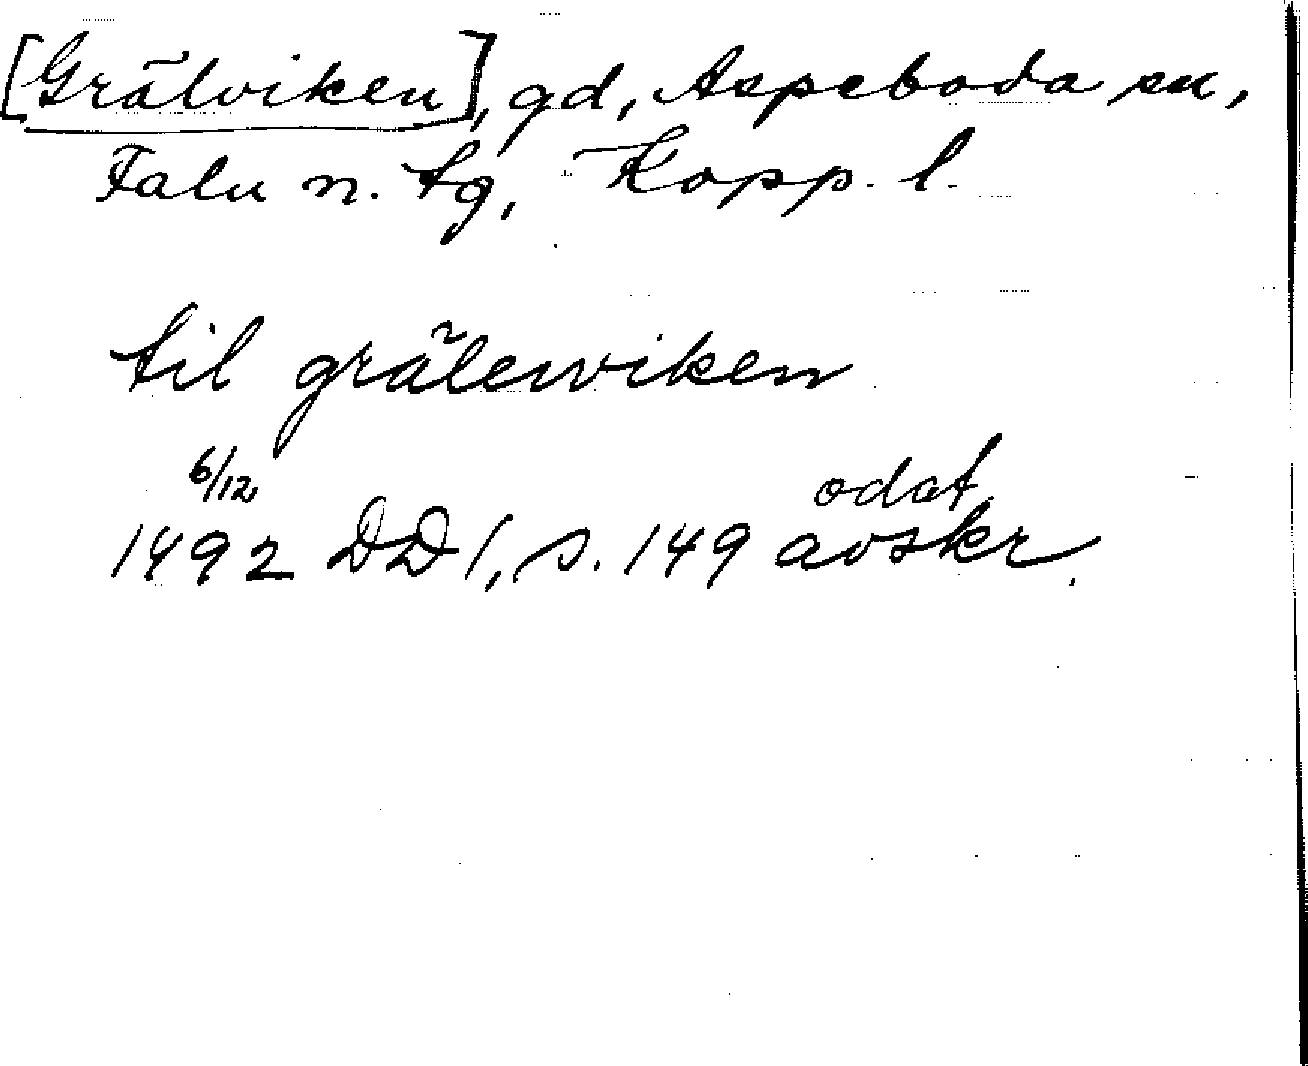 [Grälviken], gd, Aspeboda sn,
Falu n. tg, Kopp. l.
til grälewiken
6/12
1492 DD 1, s. 149 odat avskr.